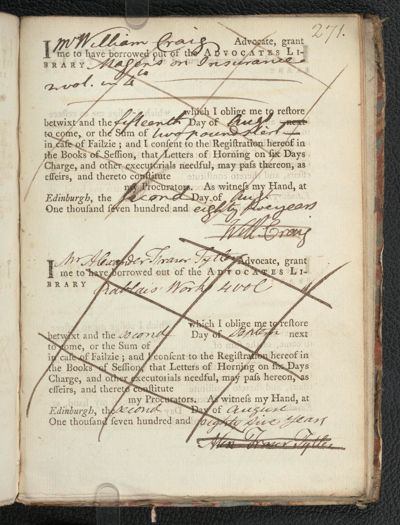 271.
I Mr William Craig Advocate, grant
me to have borrowed out of the ADVOCATES LI-
BRARY Magens on Insurance
2 vol. in 4to
which I oblige me to restore
betwixt and the fifteenth Day of Augt next
to come, or the Sum of two pound sterl
in case of Failzie; and I consent to the Registration hereof in
the Books of Session, that Letters of Horning on six Days
Charge, and other executorials needful, may pass hereon, as
effeirs, and thereto constitute
my Procurators. As witness my Hand, at
Edinburgh, the second Day of Augt
One thousand seven hundred and eighty five years
Will Craig
I Mr Alexander Fraser Tytler Advocate, grant
me to have borrowed out of the ADVOCATES LI-
BRARY Rablais Works 4 vol
which I oblige me to restore
betwixt and the second Day of next
to come, or the Sum of
in case of Failzie; and I consent to the Registration hereof in
the Books of Session, that Letters of Horning on six Days
Charge, and other executorials needful, may pass hereon, as
effeirs, and thereto constitute
my Procurators. As witness my Hand, at
Edinburgh, the second Day of August
One thousand seven hundred and eighty five years
Alex Fraser Tytler